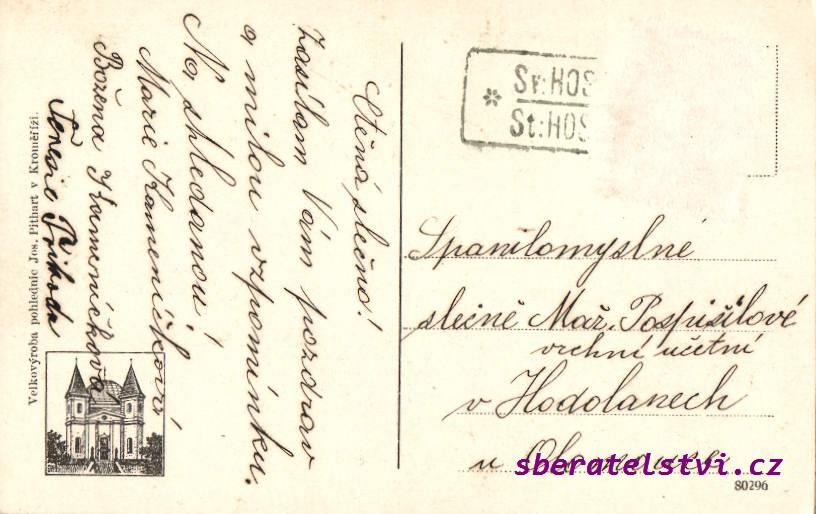 Ctěná slečno!
Zasílám Vám pozdrav
a milou vzpomínku.
Na shledanou!
Marie Kameníčková
Božena Kameníčková
Příhoda
Velkovýroba pohlednic Jos. Pithart v Kroměříži.
* Sv:HOS
St:HOS
Spanilomyslné
slečně Mař. Pospíšilové
vrchní učetní
v Hodolanech
u Olomouce
sberatelstvi.cz
80296